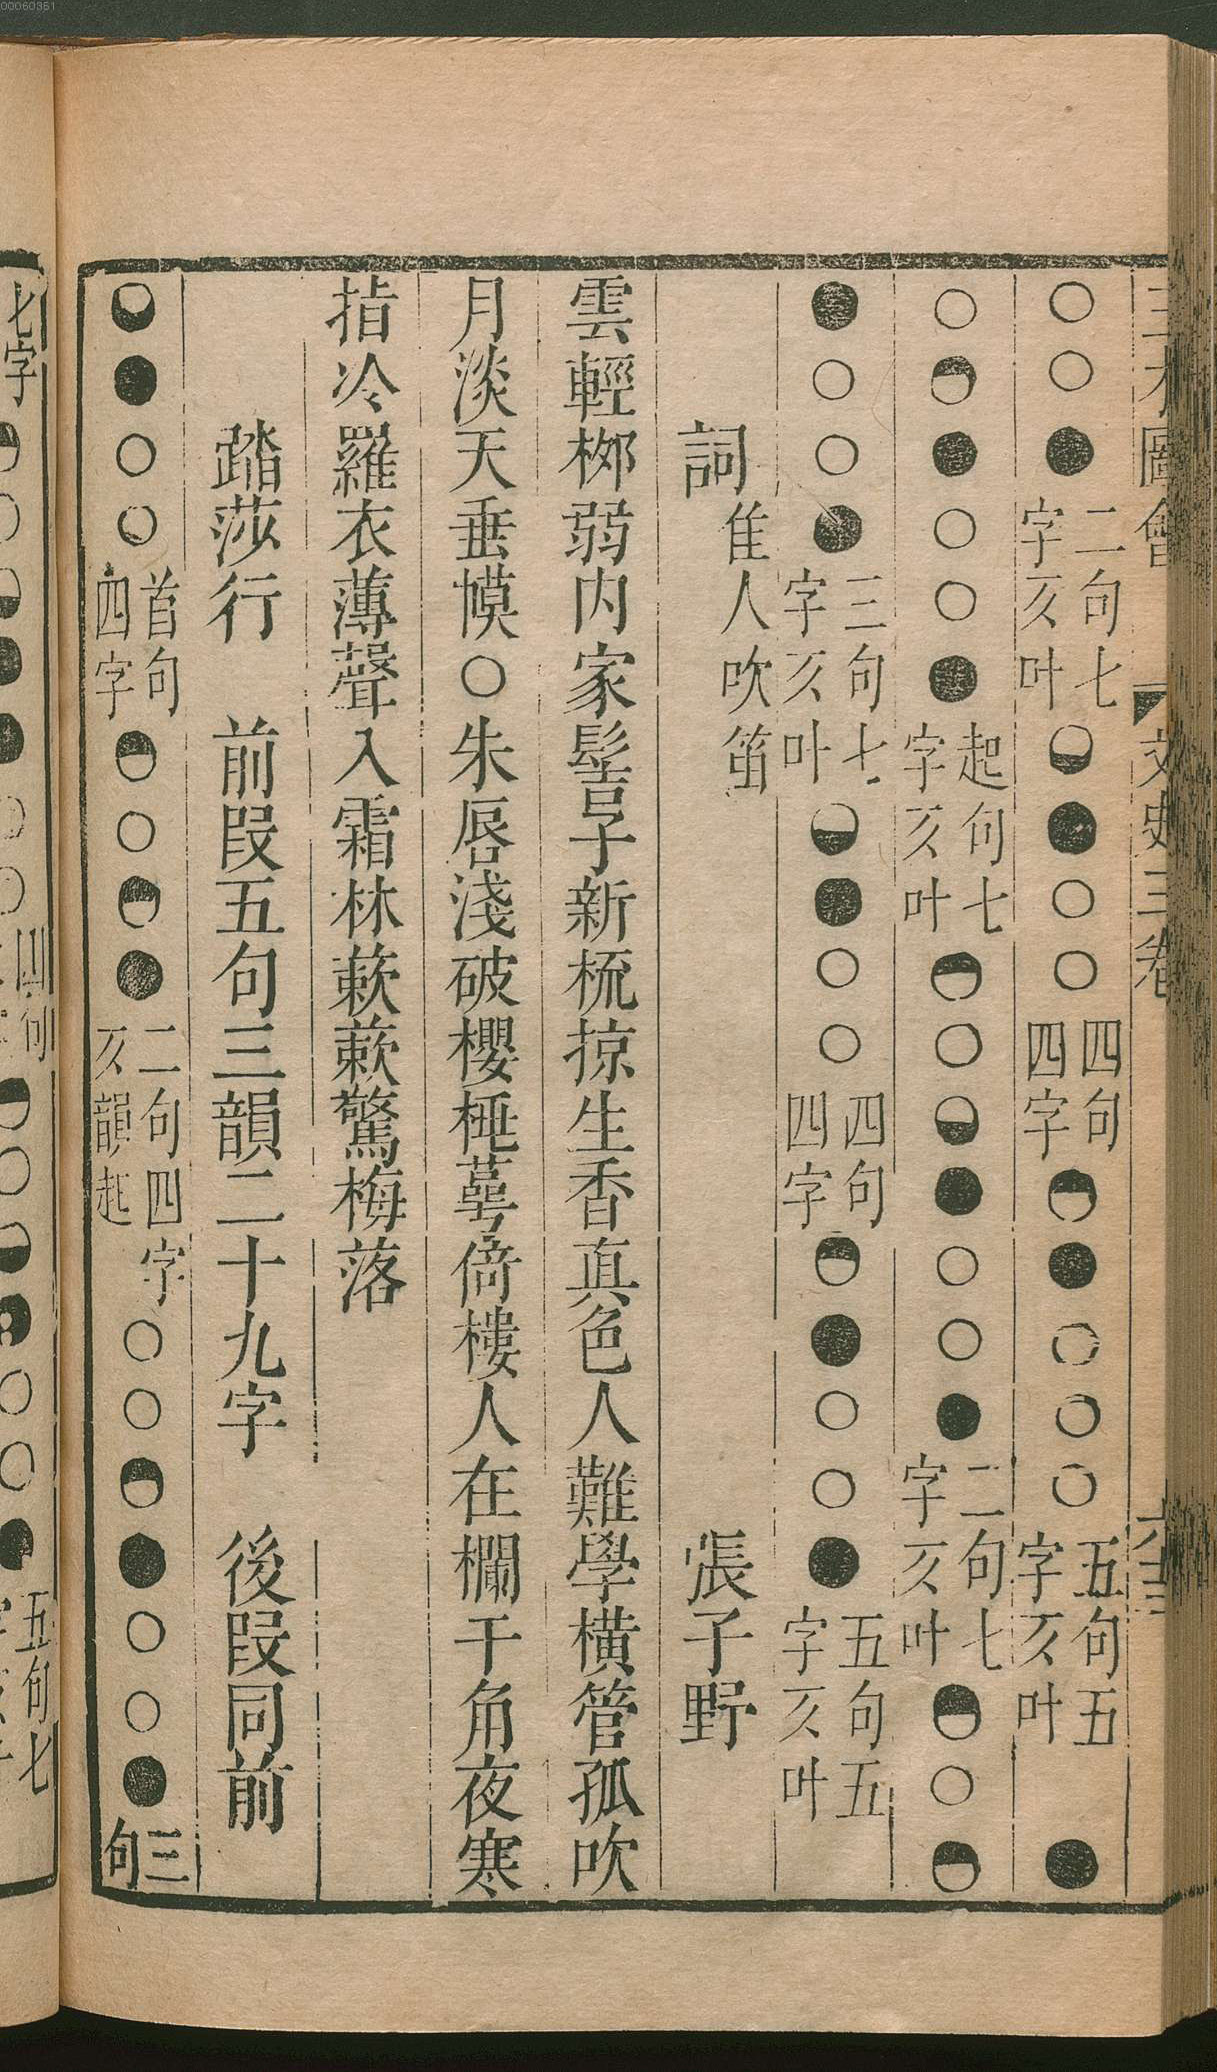 00060351
三才圖會 文史三卷
○○●二句七字仄叶◒●○○四句四字◓●○○○五句五字仄叶 ●
○◓●○○●起句七字仄叶◓○◒●○○●二句七字仄叶◓○◓
●○○●三句七字仄叶◒●○○四句四字◓●○○●五句五字仄叶
詞 佳人吹笛 張子野
雲輕桞弱内家髻子新梳掠生香真色人難學橫管孤吹
月淡天垂幙○朱唇淺破櫻桃萼倚樓人在欄干角夜寒
指冷羅衣薄聲入霜林蔌蔌驚梅落
踏莎行 前段五句三韻二十九字 後段同前
◒●○○首句四字◓○◓●二句四字仄韻起○○◓●○○●三句